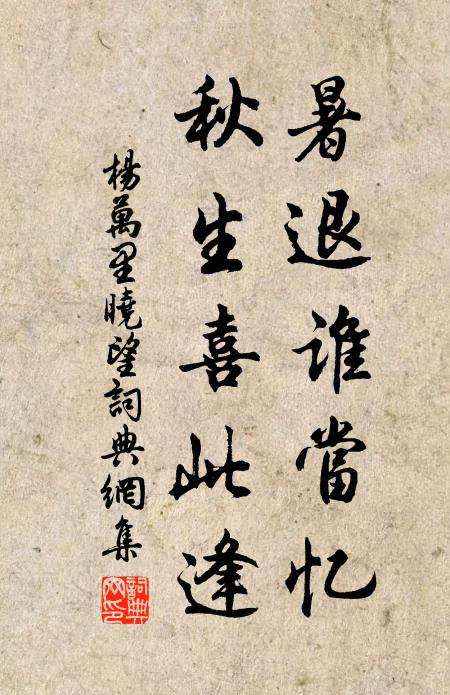 暑退谁當忆
秋生喜此逢
楊萬里曉望詞典網集